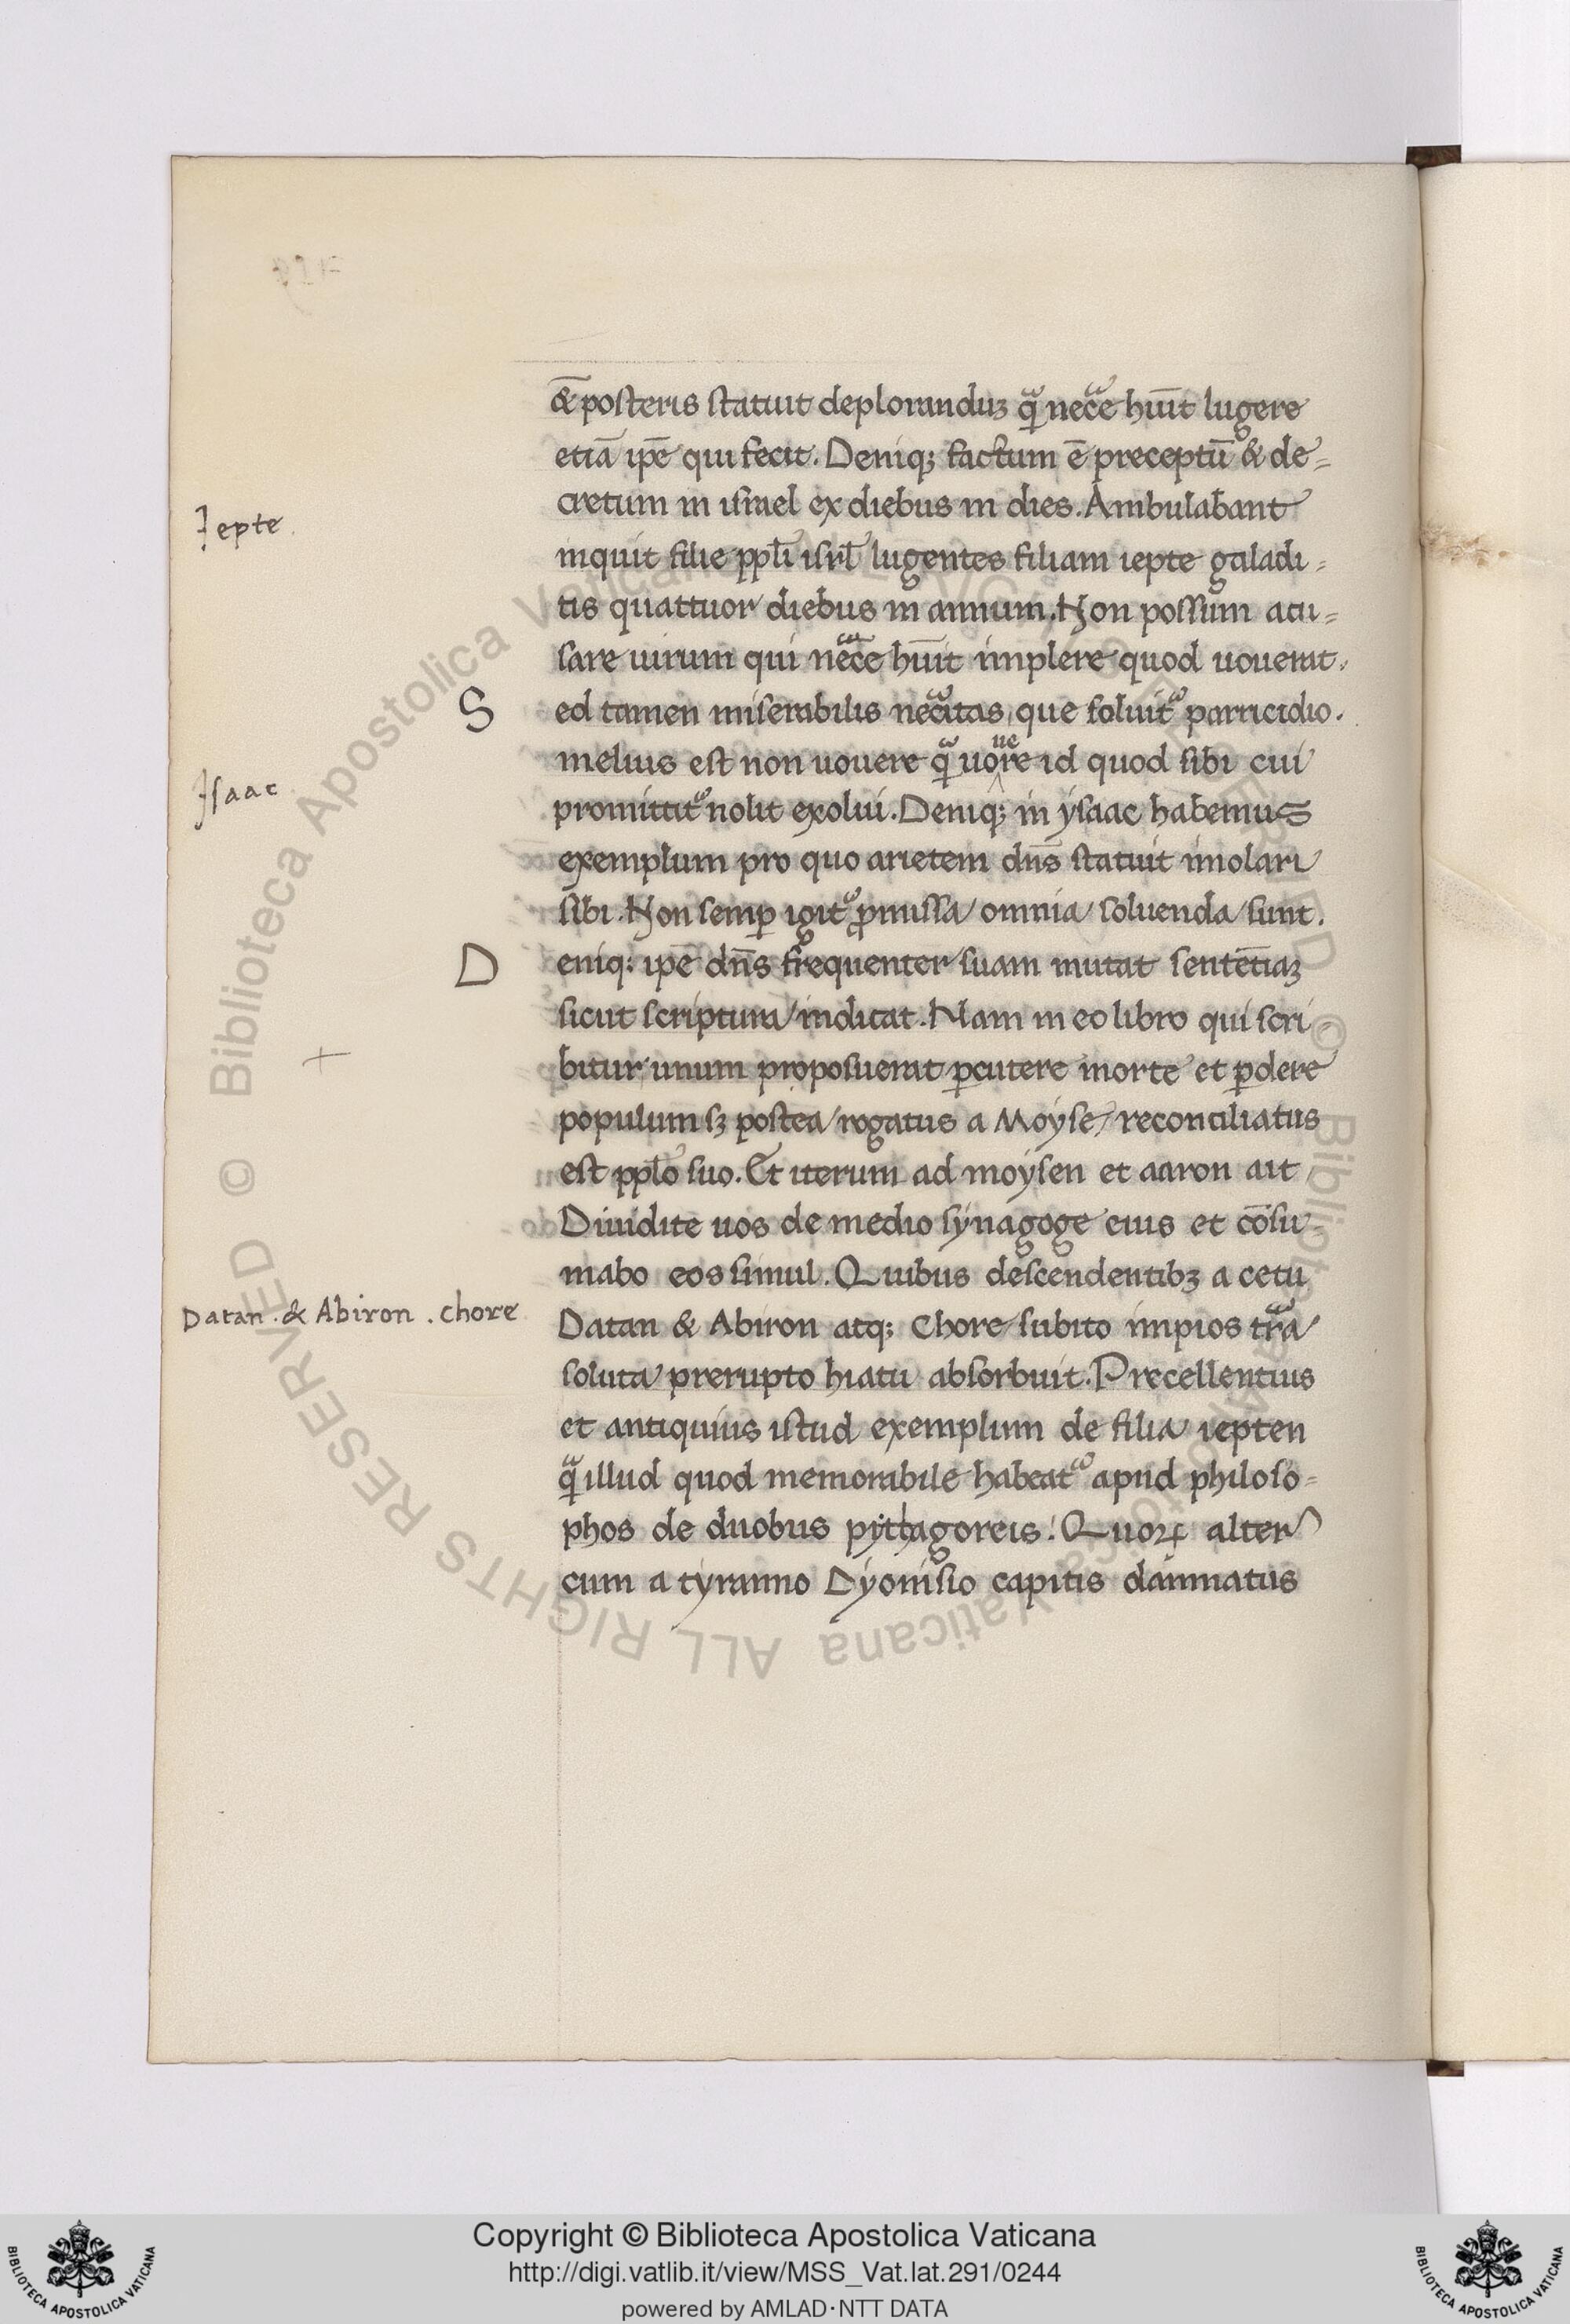 & posteris statuit deploranduʒ qᷓ nec̄e hūit lugere
etiā ip̄e qui fecit. Deniq; factum ē preceptū & de=
cretum in israel ex diebus in dies. Ambulabant
Jepte.
inquit filie ppl̄i isrl̄ lugentes filiam iepte galadi=
tis quattuor diebus in annum. Non possum acu=
sare uirum qui nec̄e hūit implere quod uouerat.
S ed tamen miserabilis nec̄itas, que soluit᷑ parricidio.
melius est non uouere qᷓ uouere id quod sibi cui
Jsaac
promittit᷑ nolit exolui. Deniq; in ysaac habemus
exemplum pro quo arietem dn̄s statuit imolari
sibi. Non semꝑ igit᷑ ꝓmissa omnia soluenda sunt.
D eniq; ip̄e dn̄s frequenter suam mutat sentētiaʒ
sicut scriptura indicat. Nam in eo libro qui scri-
bitur unum proposuerat ꝑcutere morte et ꝑdere
populum sʒ postea rogatus a Moyse, reconciliatus
est ppl̄o suo. Et iterum ad moysen et aaron ait
Diuidite uos de medio synagoge eius et cōsu-
mabo eos simul. Quibus descendentibʒ a cetu
Datan. & Abiron. chore
Datan & Abiron atq; Chore subito impios tr̄a
soluta prerupto hiatu absorbuit. Precellentius
et antiquius istud exemplum de filia iepten
qᷓ illud quod memorabile habeat᷑ apud philoso=
phos de duobus pythagoreis. Quoꝝ alter
cum a tyranno Dyonisio capitis damnatus
Copyright © Biblioteca Apostolica Vaticana
http://digi.vatlib.it/view/MSS_Vat.lat.291/0244
powered by AMLAD·NTT DATA
BIBLIOTECA APOSTOLICA VATICANA
BIBLIOTECA APOSTOLICA VATICANA
© Biblioteca Apostolica Vaticana ALL RIGHTS RESERVED